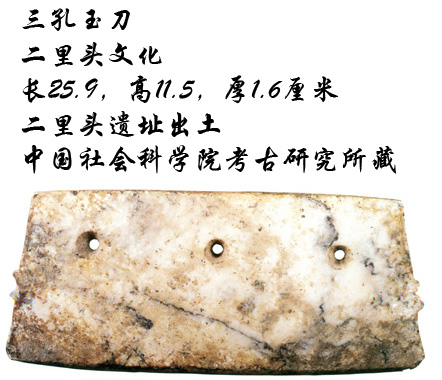 三孔玉刀
二里头文化
长25.9，高11.5，厚1.6厘米
二里头遗址出土
中国社会科学院考古研究所藏